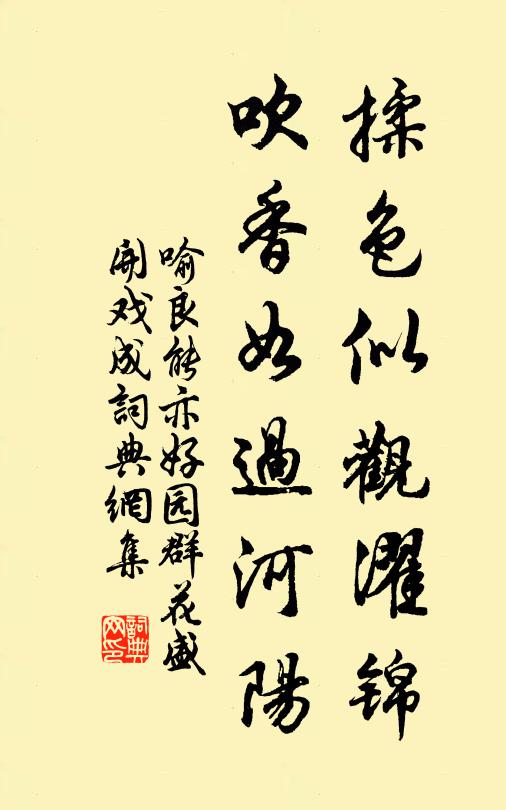 揉色似觀濯錦
吹香如過河陽
喻良能亦好园群花盛
開戏成詞典網集
詞典
网印